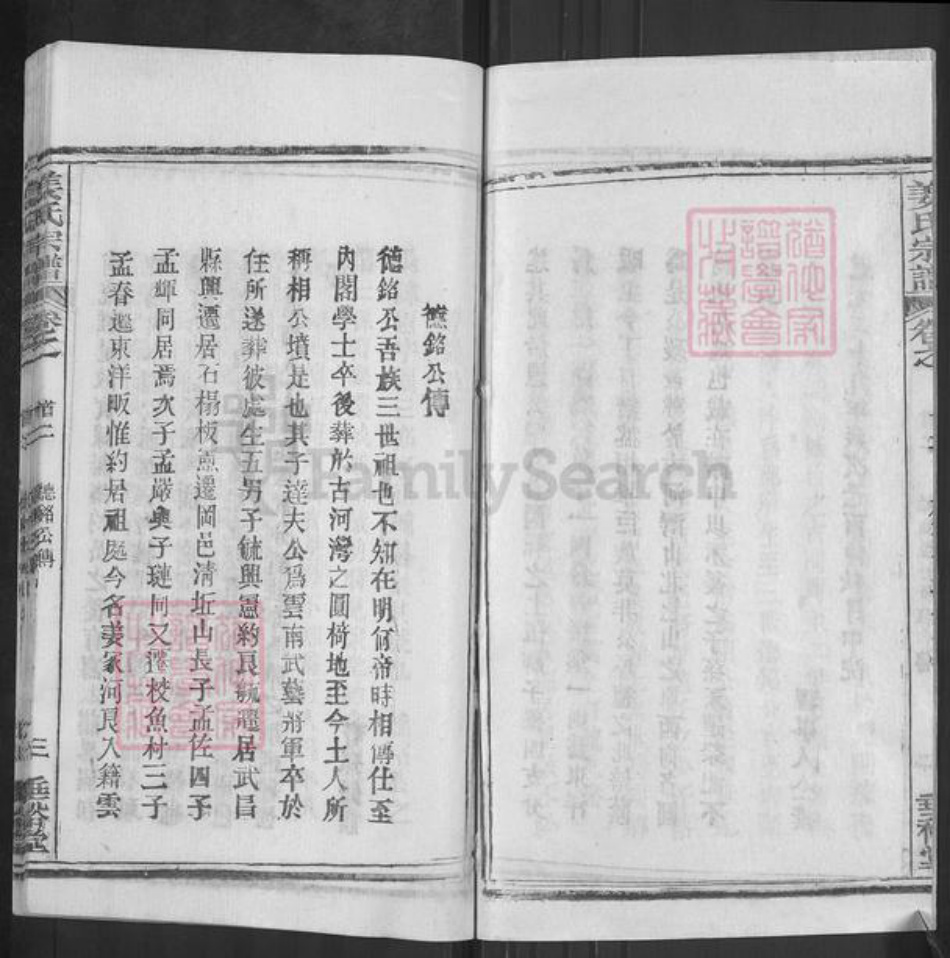 姜氏宗譜
德銘公傳
德銘公吾族三世祖也不知在明何帝時相傳仕至
內閣學士卒後葬於古河灣之圓椅地至今土人所
稱相公墳是也其子達夫公爲雲南武藝將軍卒於
任所遂葬彼處生五男子毓興憲約良毓遷居武昌
縣興遷居石楊板憲遷岡邑淸坵山長子孟佐四子
孟輝同居焉次子孟嚴與子璉同又遷校魚村三子
孟春遷東洋畈惟約居祖庭今名姜家河良入籍雲
姜氏宗譜
卷之一
首二
德銘公傳
三
垂裕堂
FamilySearch